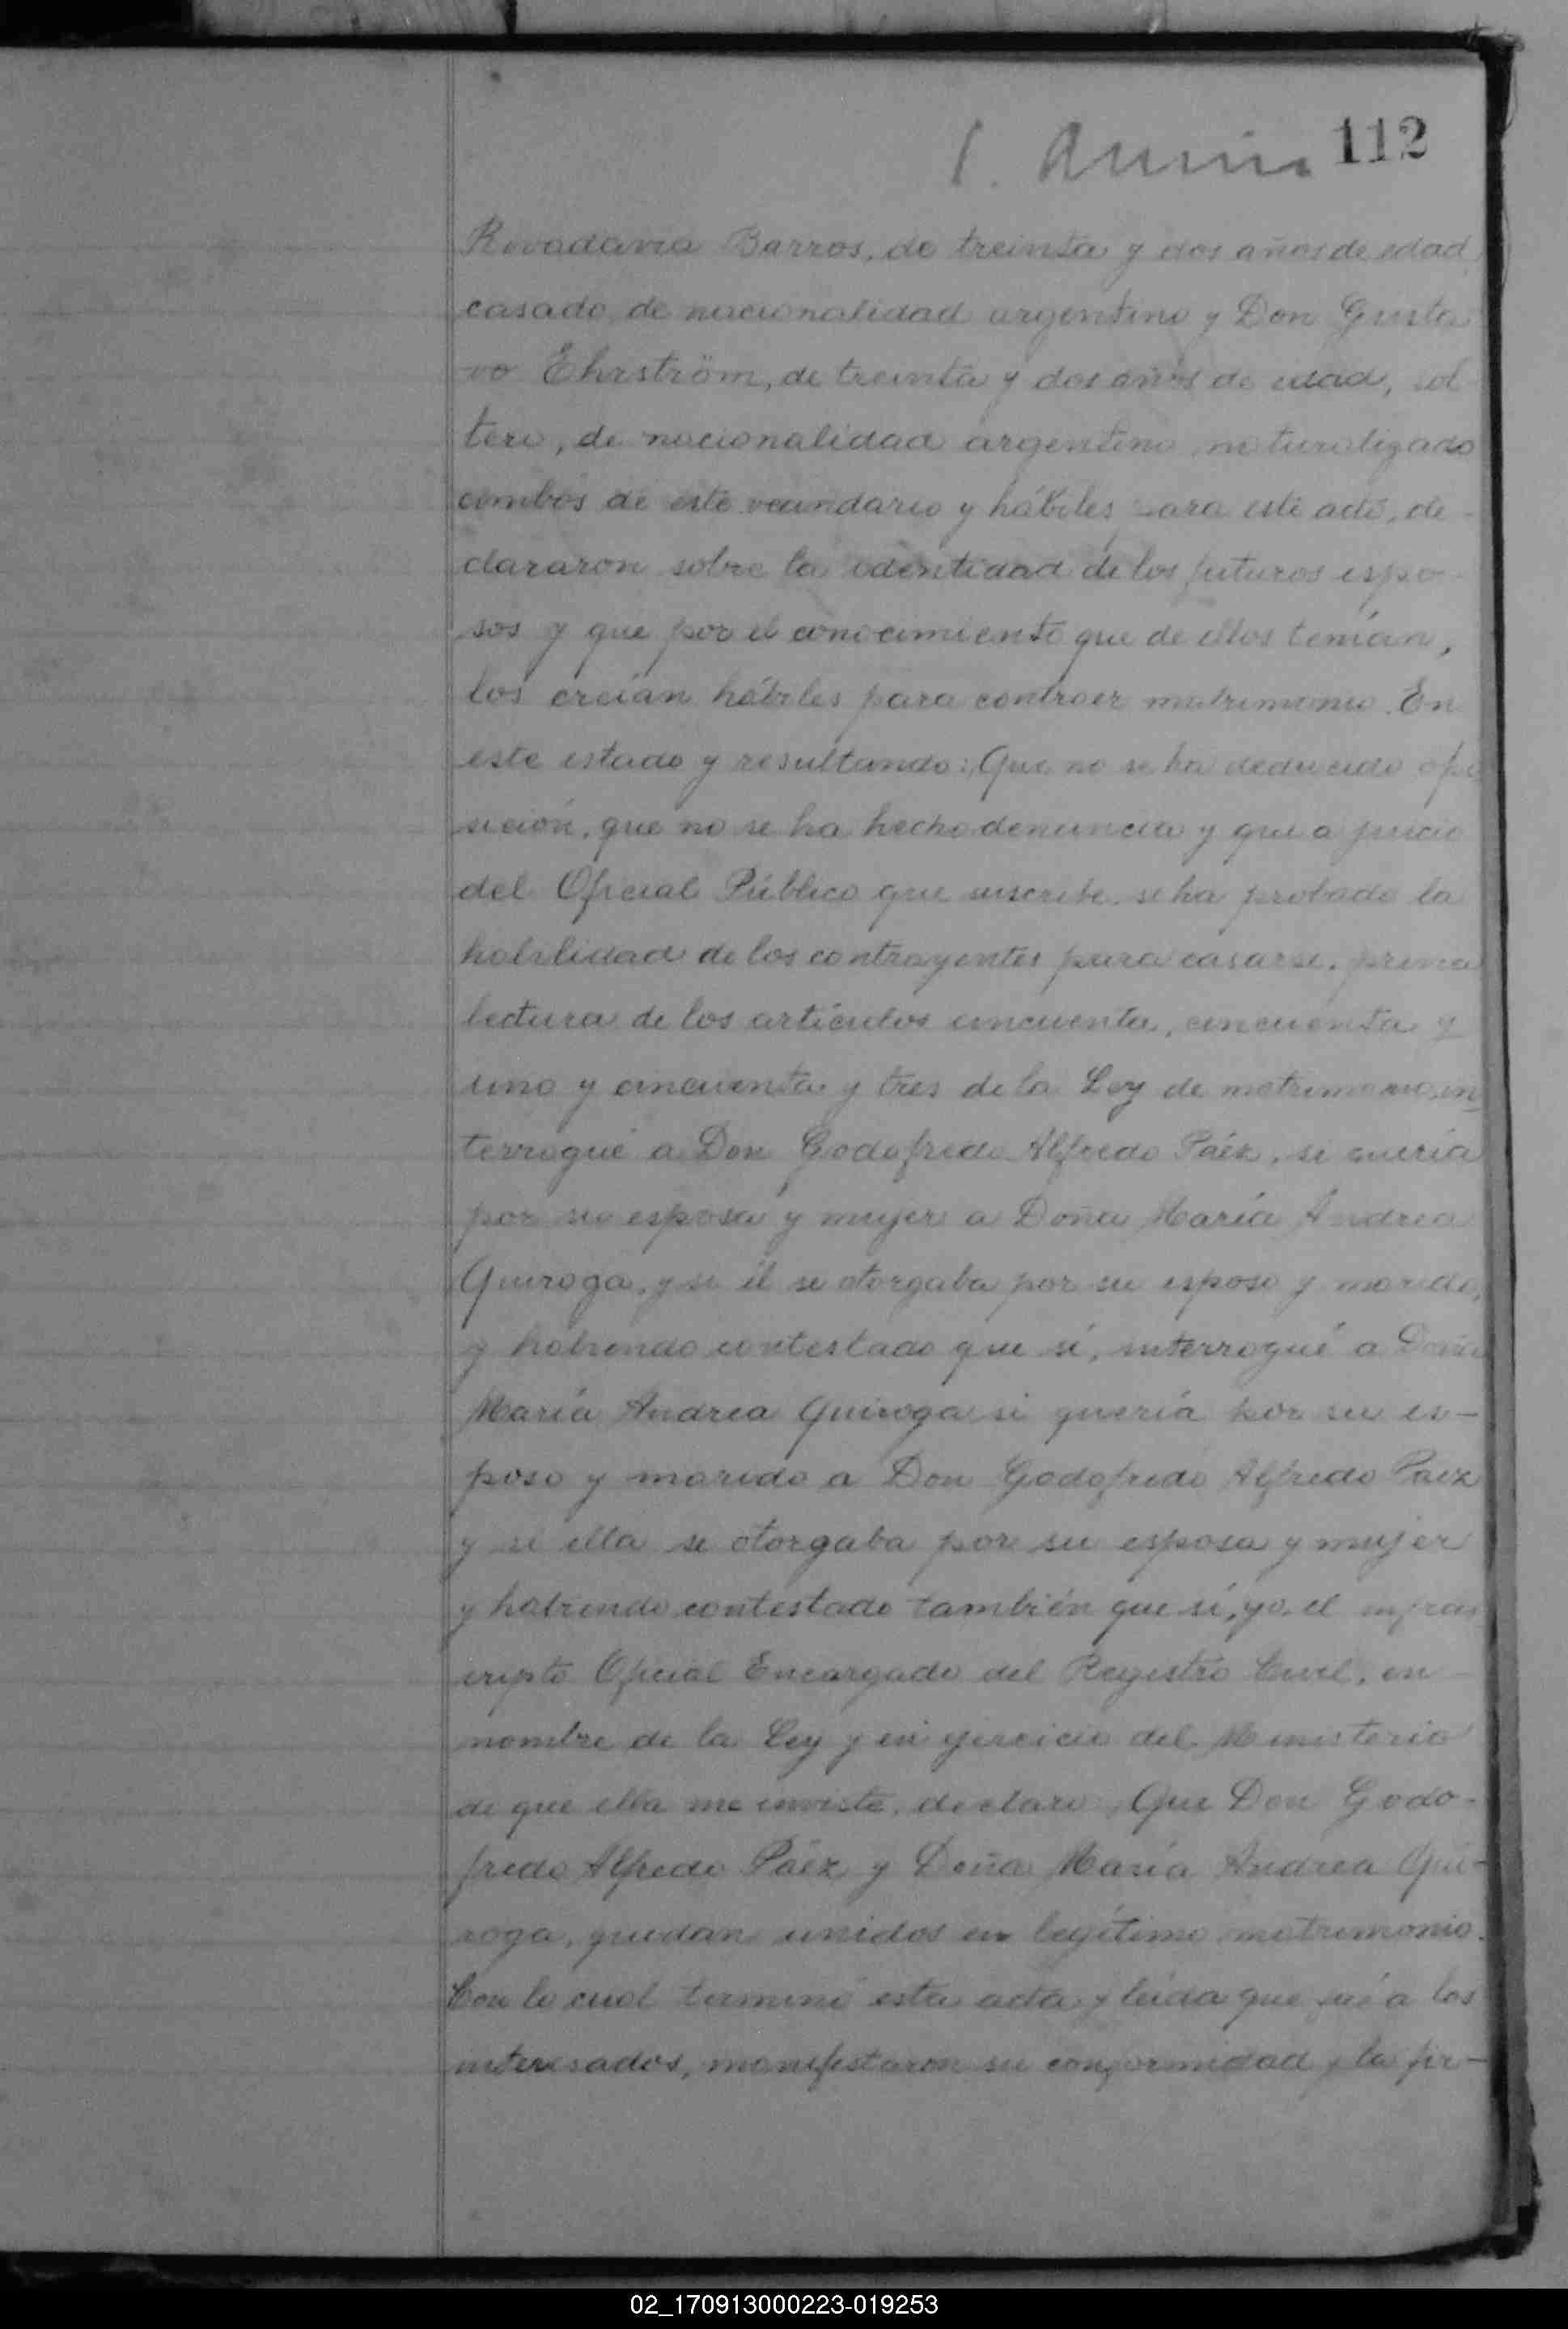 112
Rivadavia Barros, de treinta y dos años de edad,
casado, de nacionalidad argentino y Don Gusta
vo Ehrström, de treinta y dos años de edad, sol-
tero, de nacionalidad argentino, naturalizado
ambos de este vecindario y hábiles para este acto, de-
clararon sobre la identidad de los futuros espo-
sos y que por el conocimiento que de ellos tenían,
los creían hábiles para contraer matrimonio. En
este estado y resultando: Que no se ha deducido opo
sición, que no se ha hecho denuncia y que a juicio
del Oficial Público que suscribe, se ha probado la
habilidad de los contrayentes para casarse, previa
lectura de los artículos cincuenta, cincuenta y
uno y cincuenta y tres de la Ley de matrimonio, in
terrogué a Don Godofredo Alfredo Páez, si quería
por su esposa y mujer a Doña María Andrea
Quiroga, y si él se otorgaba por su esposo y marido,
y habiendo contestado que sí, interrogué a Doña
María Andrea Quiroga si quería por su es-
poso y marido a Don Godofredo Alfredo Páez
y si ella se otorgaba por su esposa y mujer
y habiendo contestado también que sí, yo, el infras
cripto Oficial Encargado del Registro Civil, en
nombre de la Ley y en ejercicio del Ministerio
de que ella me inviste, declaro, Que Don Godo-
fredo Alfredo Páez y Doña María Andrea Qui-
roga, quedan unidos en legítimo matrimonio.
Con lo cual terminó esta acta y leída que fué a los
interesados, manifestaron su conformidad y la fir-
02_170913000223-019253